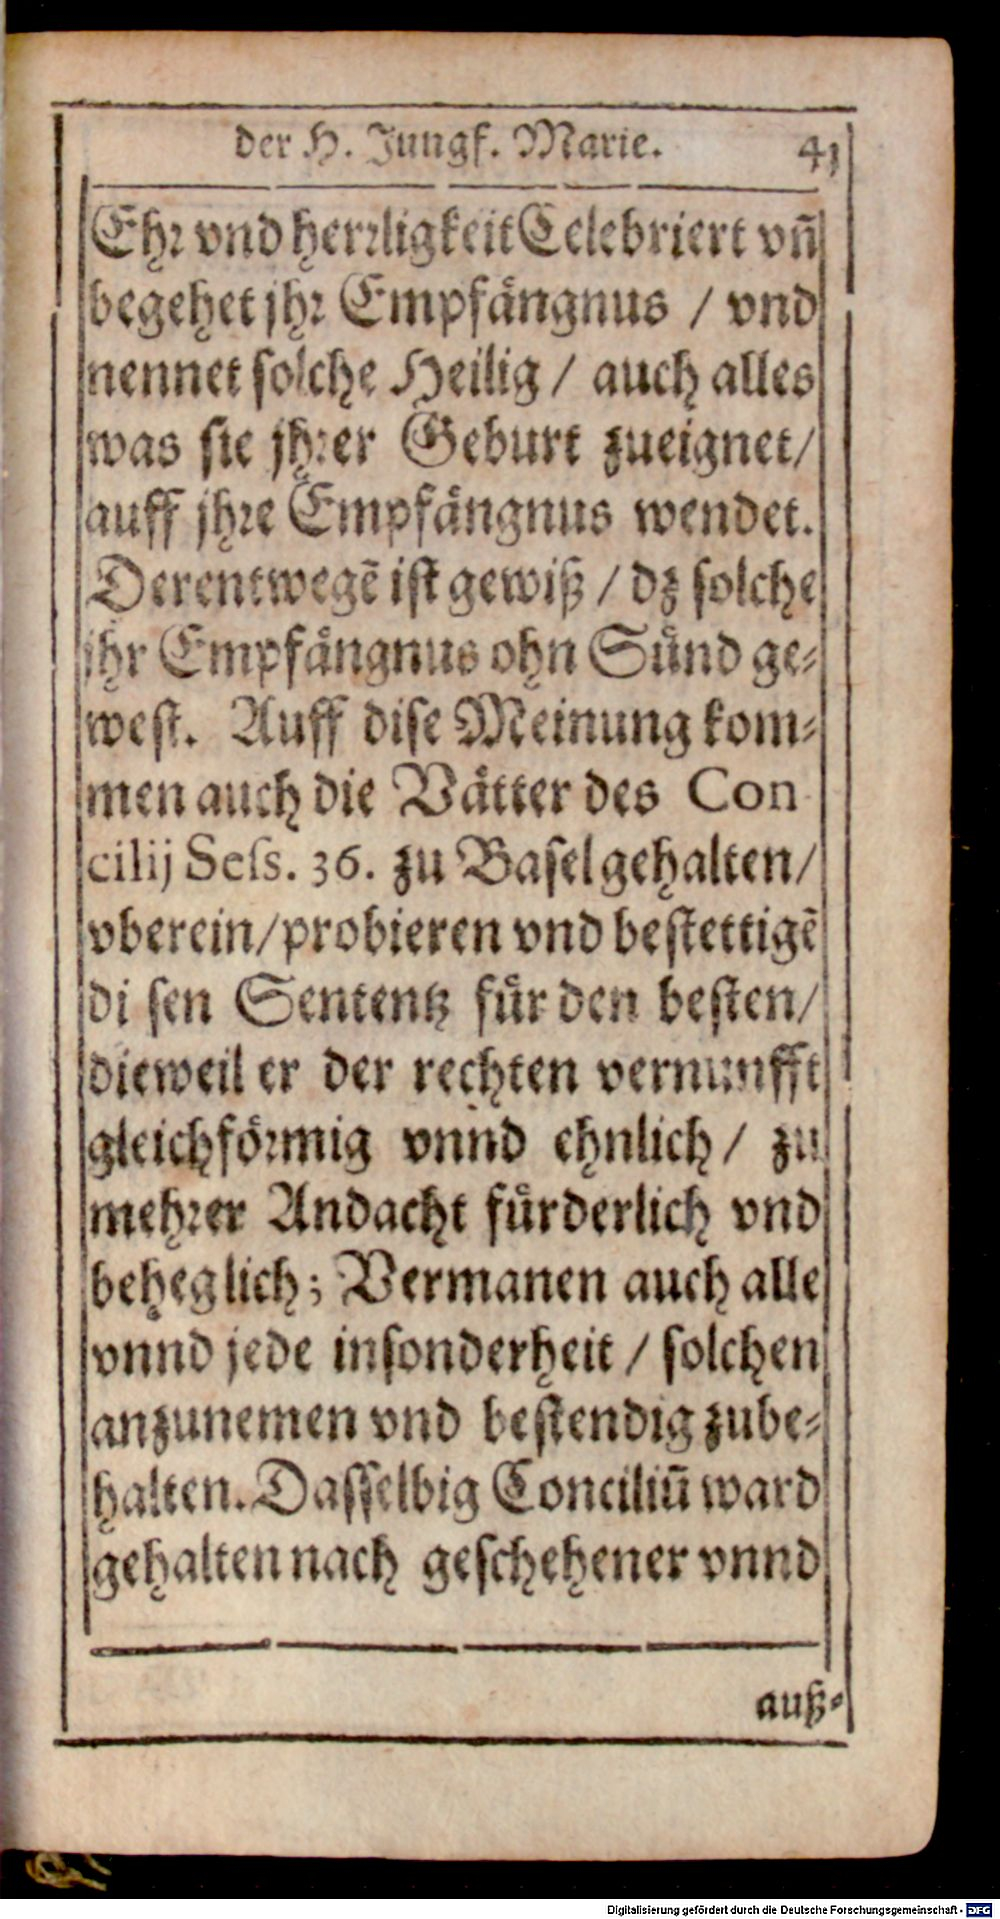 der H. Jungf. Marie. 41
Ehr vnd herrligkeit Celebriert vñ
begehet jhr Empfängnus / vnd
nennet solche Heilig / auch alles
was sie jhrer Geburt zueignet/
auff jhre Empfängnus wendet.
Derentwegē ist gewiß / dz solche
jhr Empfängnus ohn Sünd ge-
west. Auff dise Meinung kom-
men auch die Vätter des Con
cilij Sess. 36. zu Basel gehalten/
vberein/probieren vnd bestettigē
di sen Sententz für den besten/
dieweil er der rechten vernunfft
gleichförmig vnnd ehnlich / zu
mehrer Andacht fürderlich vnd
beheglich; Vermanen auch alle
vnnd jede insonderheit / solchen
anzunemen vnd bestendig zube-
halten. Dasselbig Conciliū ward
gehalten nach geschehener vnnd
auß-
Digitalisierung gefördert durch die Deutsche Forschungsgemeinschaft - DFG